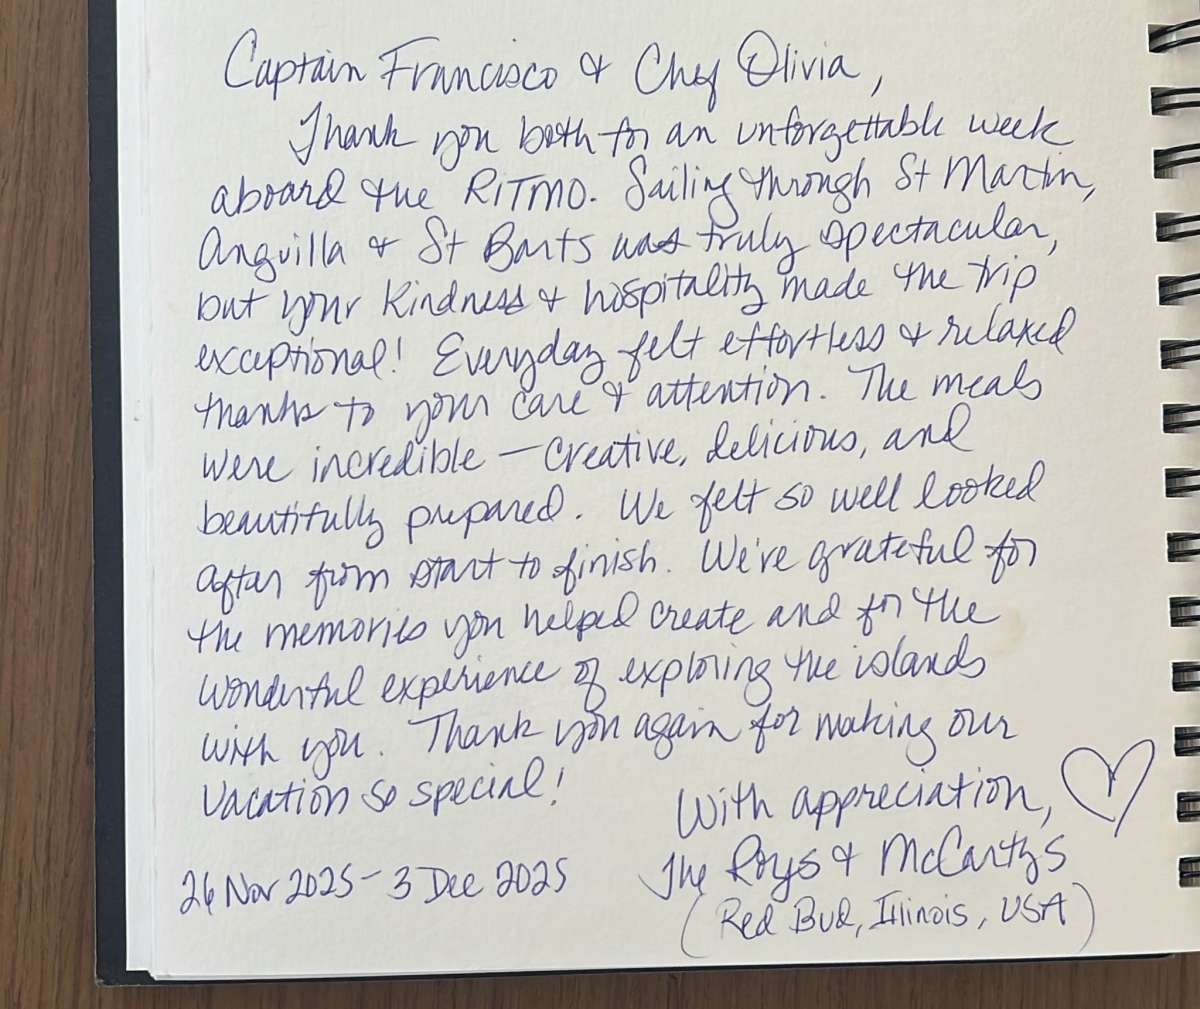 Captain Francisco & Chef Olivia,
Thank you both for an unforgettable week
aboard the RITMO. Sailing through St Martin,
Anguilla & St Barts was truly spectacular,
but your kindness & hospitality made the trip
exceptional! Everyday felt effortless & relaxed
thanks to your care & attention. The meals
were incredible – creative, delicious, and
beautifully prepared. We felt so well looked
after from start to finish. We've grateful for
the memories you helped create and for the
wonderful experience of exploring the islands
with you. Thank you again for making our
vacation so special!
With appreciation,
The Roys & McCartys
(Red Bud, Illinois, USA)
26 Nov 2025 - 3 Dec 2025